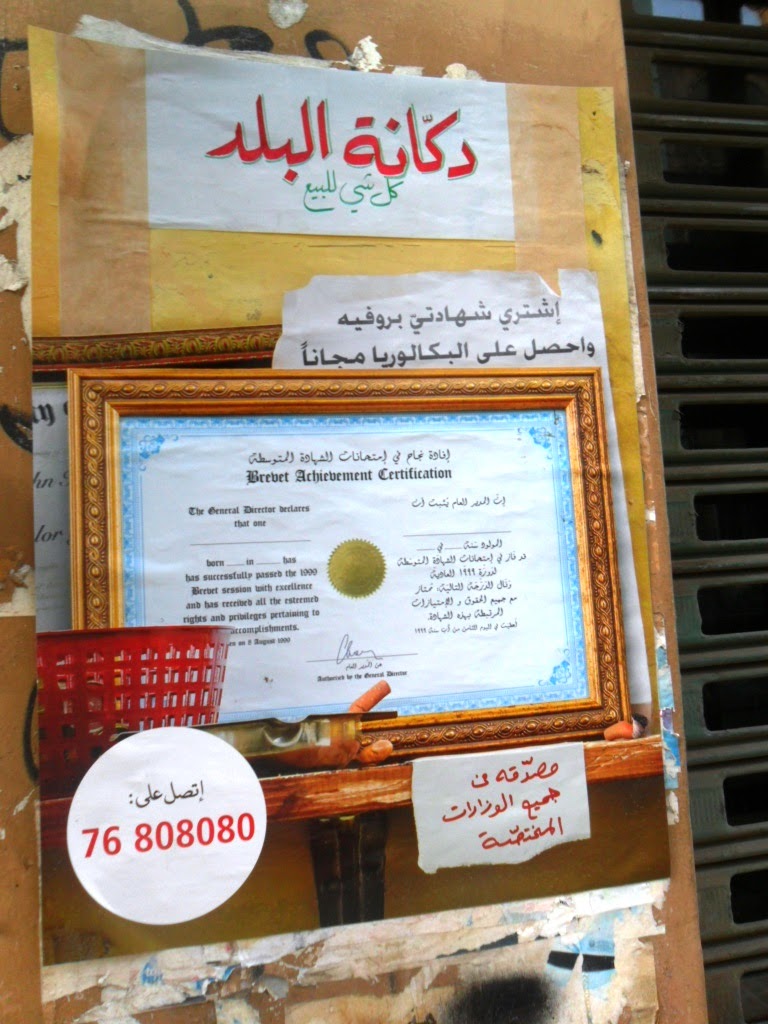 دكّانة البلد
كل شي للبيع
إشتري شهادتيّ بروفيه
واحصل على البكالوريا مجاناً
إفادة نجاح في إمتحانات الشهادة المتوسطة
Brevet Achievement Certification
The General Director declares
that one
إن المدير العام يثبت أن
born ____ in ____ has
has successfully passed the 1999
Brevet session with excellence
and has received all the esteemed
rights and privileges pertaining to
accomplishments.
on 8 August 1999
المولود سنة ____ في ____
قد فاز في إمتحانات الشهادة المتوسطة
لدورة ١٩٩٩ العادية
ونال الدرجة التالية: ممتاز
مع جميع الحقوق و الإمتيازات
المرتبطة بهذه الشهادة.
أعطيت في اليوم الثامن من آب سنة ١٩٩٩
عن المدير العام
Authorized by the General Director
إتصل على:
76 808080
مصدّقه في
جميع الوزارات
المختصّة